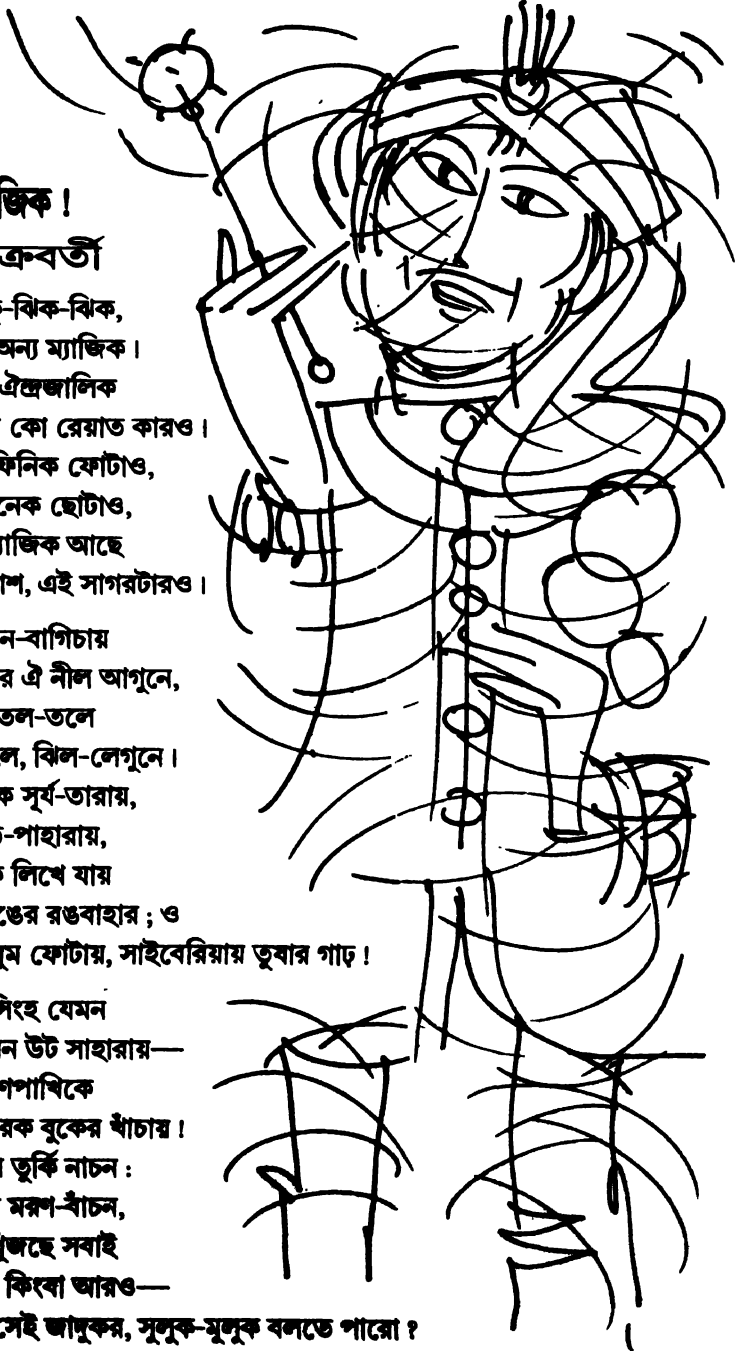 জিক !
ক্রবর্তী
-ঝিক-ঝিক,
অন্য ম্যাজিক।
ঐন্দ্রজালিক
কো রেয়াত কারও।
ফিনিক ফোটাও,
নেক ছোটাও,
যাজিক আছে
াশ, এই সাগরটারও।
ন-বাগিচায়
র ঐ নীল আগুনে,
তল-তলে
লে, ঝিল-লেগুনে।
ক সূর্য-তারায়,
-পাহারায়,
লিখে যায়
ঙের রঙবাহার ; ও
ুম ফোটায়, সাইবেরিয়ায় তুষার গাঢ় !
সিংহ যেমন
ন উট সাহারায়—
ণপাখিকে
রক বুকের খাঁচায় !
তুর্কি নাচন :
মরণ-বাঁচন,
খুঁজছে সবাই
কিংবা আরও—
সেই জাদুকর, সুলুক-মুলুক বলতে পারো ?